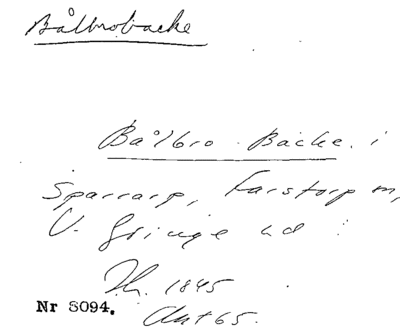 Bålbrobacke
Bålbro Backe i
Sparrarp, Farstorp m,
V. Göinge hd
Th. 1845
Nr 3094. Akt 65.